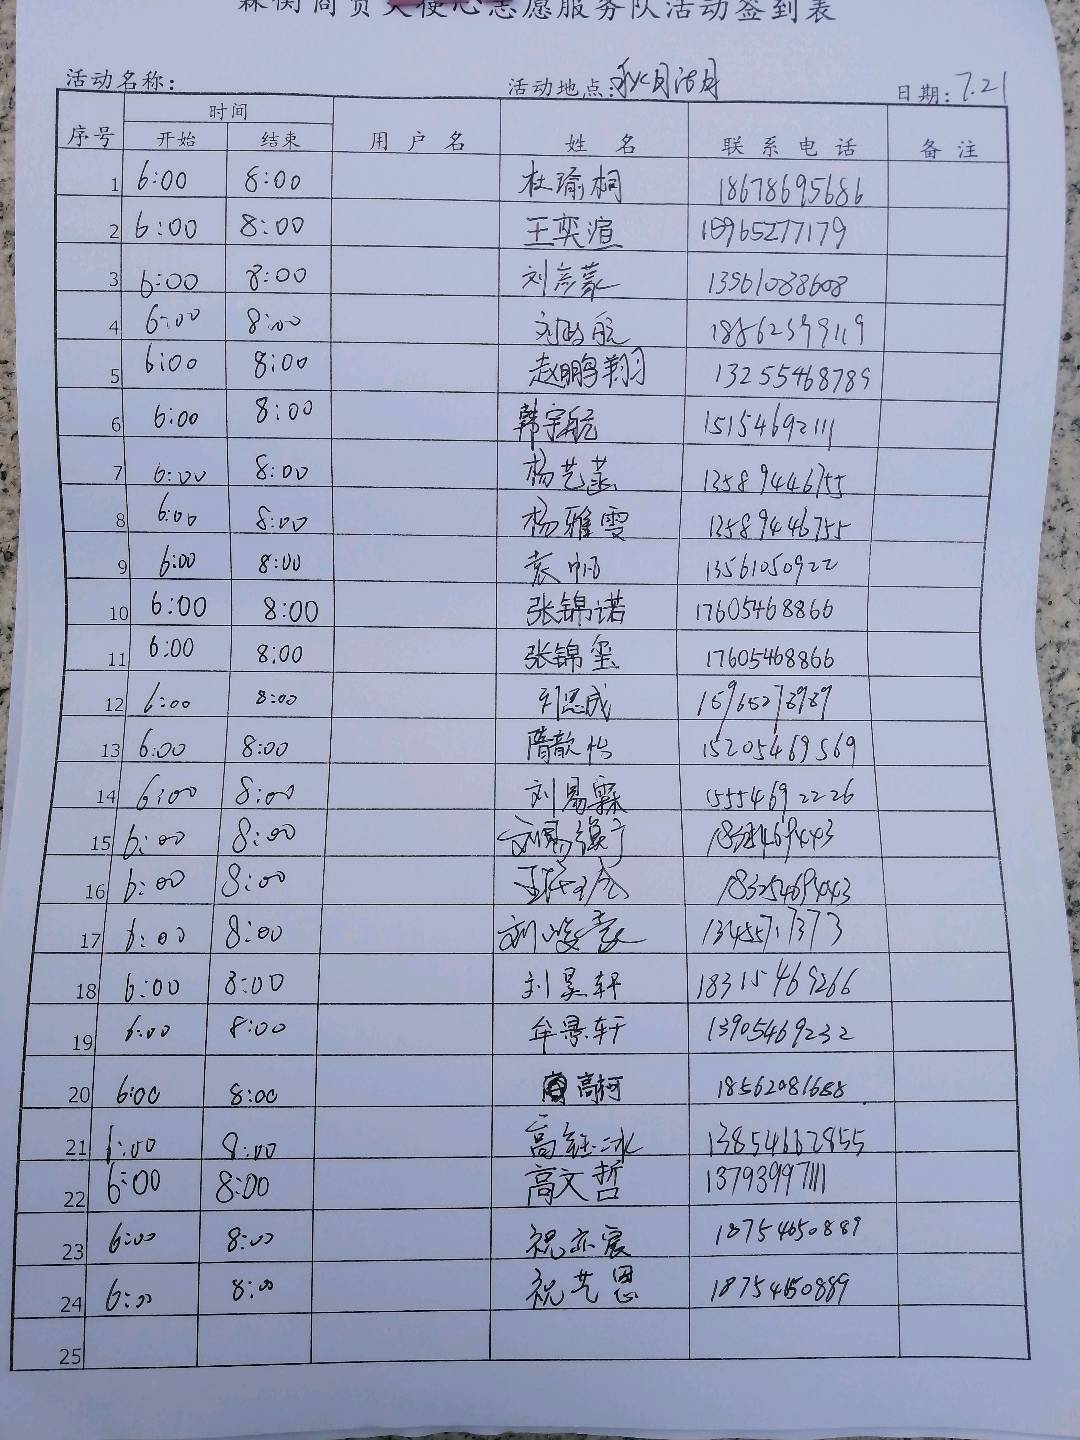 商贸天使心志愿服务队活动签到表
活动名称： 活动地点： 日期：7.21
序号 时间 用 户 名 姓 名 联 系 电 话 备 注
开始 结束
1 6:00 8:00 杜瑜桐 18678695686
2 6:00 8:00 王奕渲 15965277179
3 6:00 8:00 刘彦蒙 13561088608
4 6:00 8:00 刘政航 18862399119
5 6:00 8:00 赵鹏翔 13255468789
6 6:00 8:00 韩宇航 15154692111
7 6:00 8:00 杨艺菡 13589446755
8 6:00 8:00 杨雅雯 13589446755
9 6:00 8:00 袁帅 13561050922
10 6:00 8:00 张锦诺 17605468866
11 6:00 8:00 张锦玺 17605468866
12 6:00 8:00 刘思成
13 6:00 8:00 隋歆怡 15205469569
14 6:00 8:00 刘易霖 15554692226
15 6:00 8:00 18325469443
16 6:00 8:00 18325469443
17 6:00 8:00 13455717373
18 6:00 8:00 刘昊轩 18315469266
19 6:00 8:00 牟景轩 13905469232
20 6:00 8:00 高柯 18562081688
21 6:00 8:00 高钰冰 13854662855
22 6:00 8:00 高文哲 13793997111
23 6:00 8:00 祝亦宸 18754650889
24 6:00 8:00 祝艺恩 18754650889
25